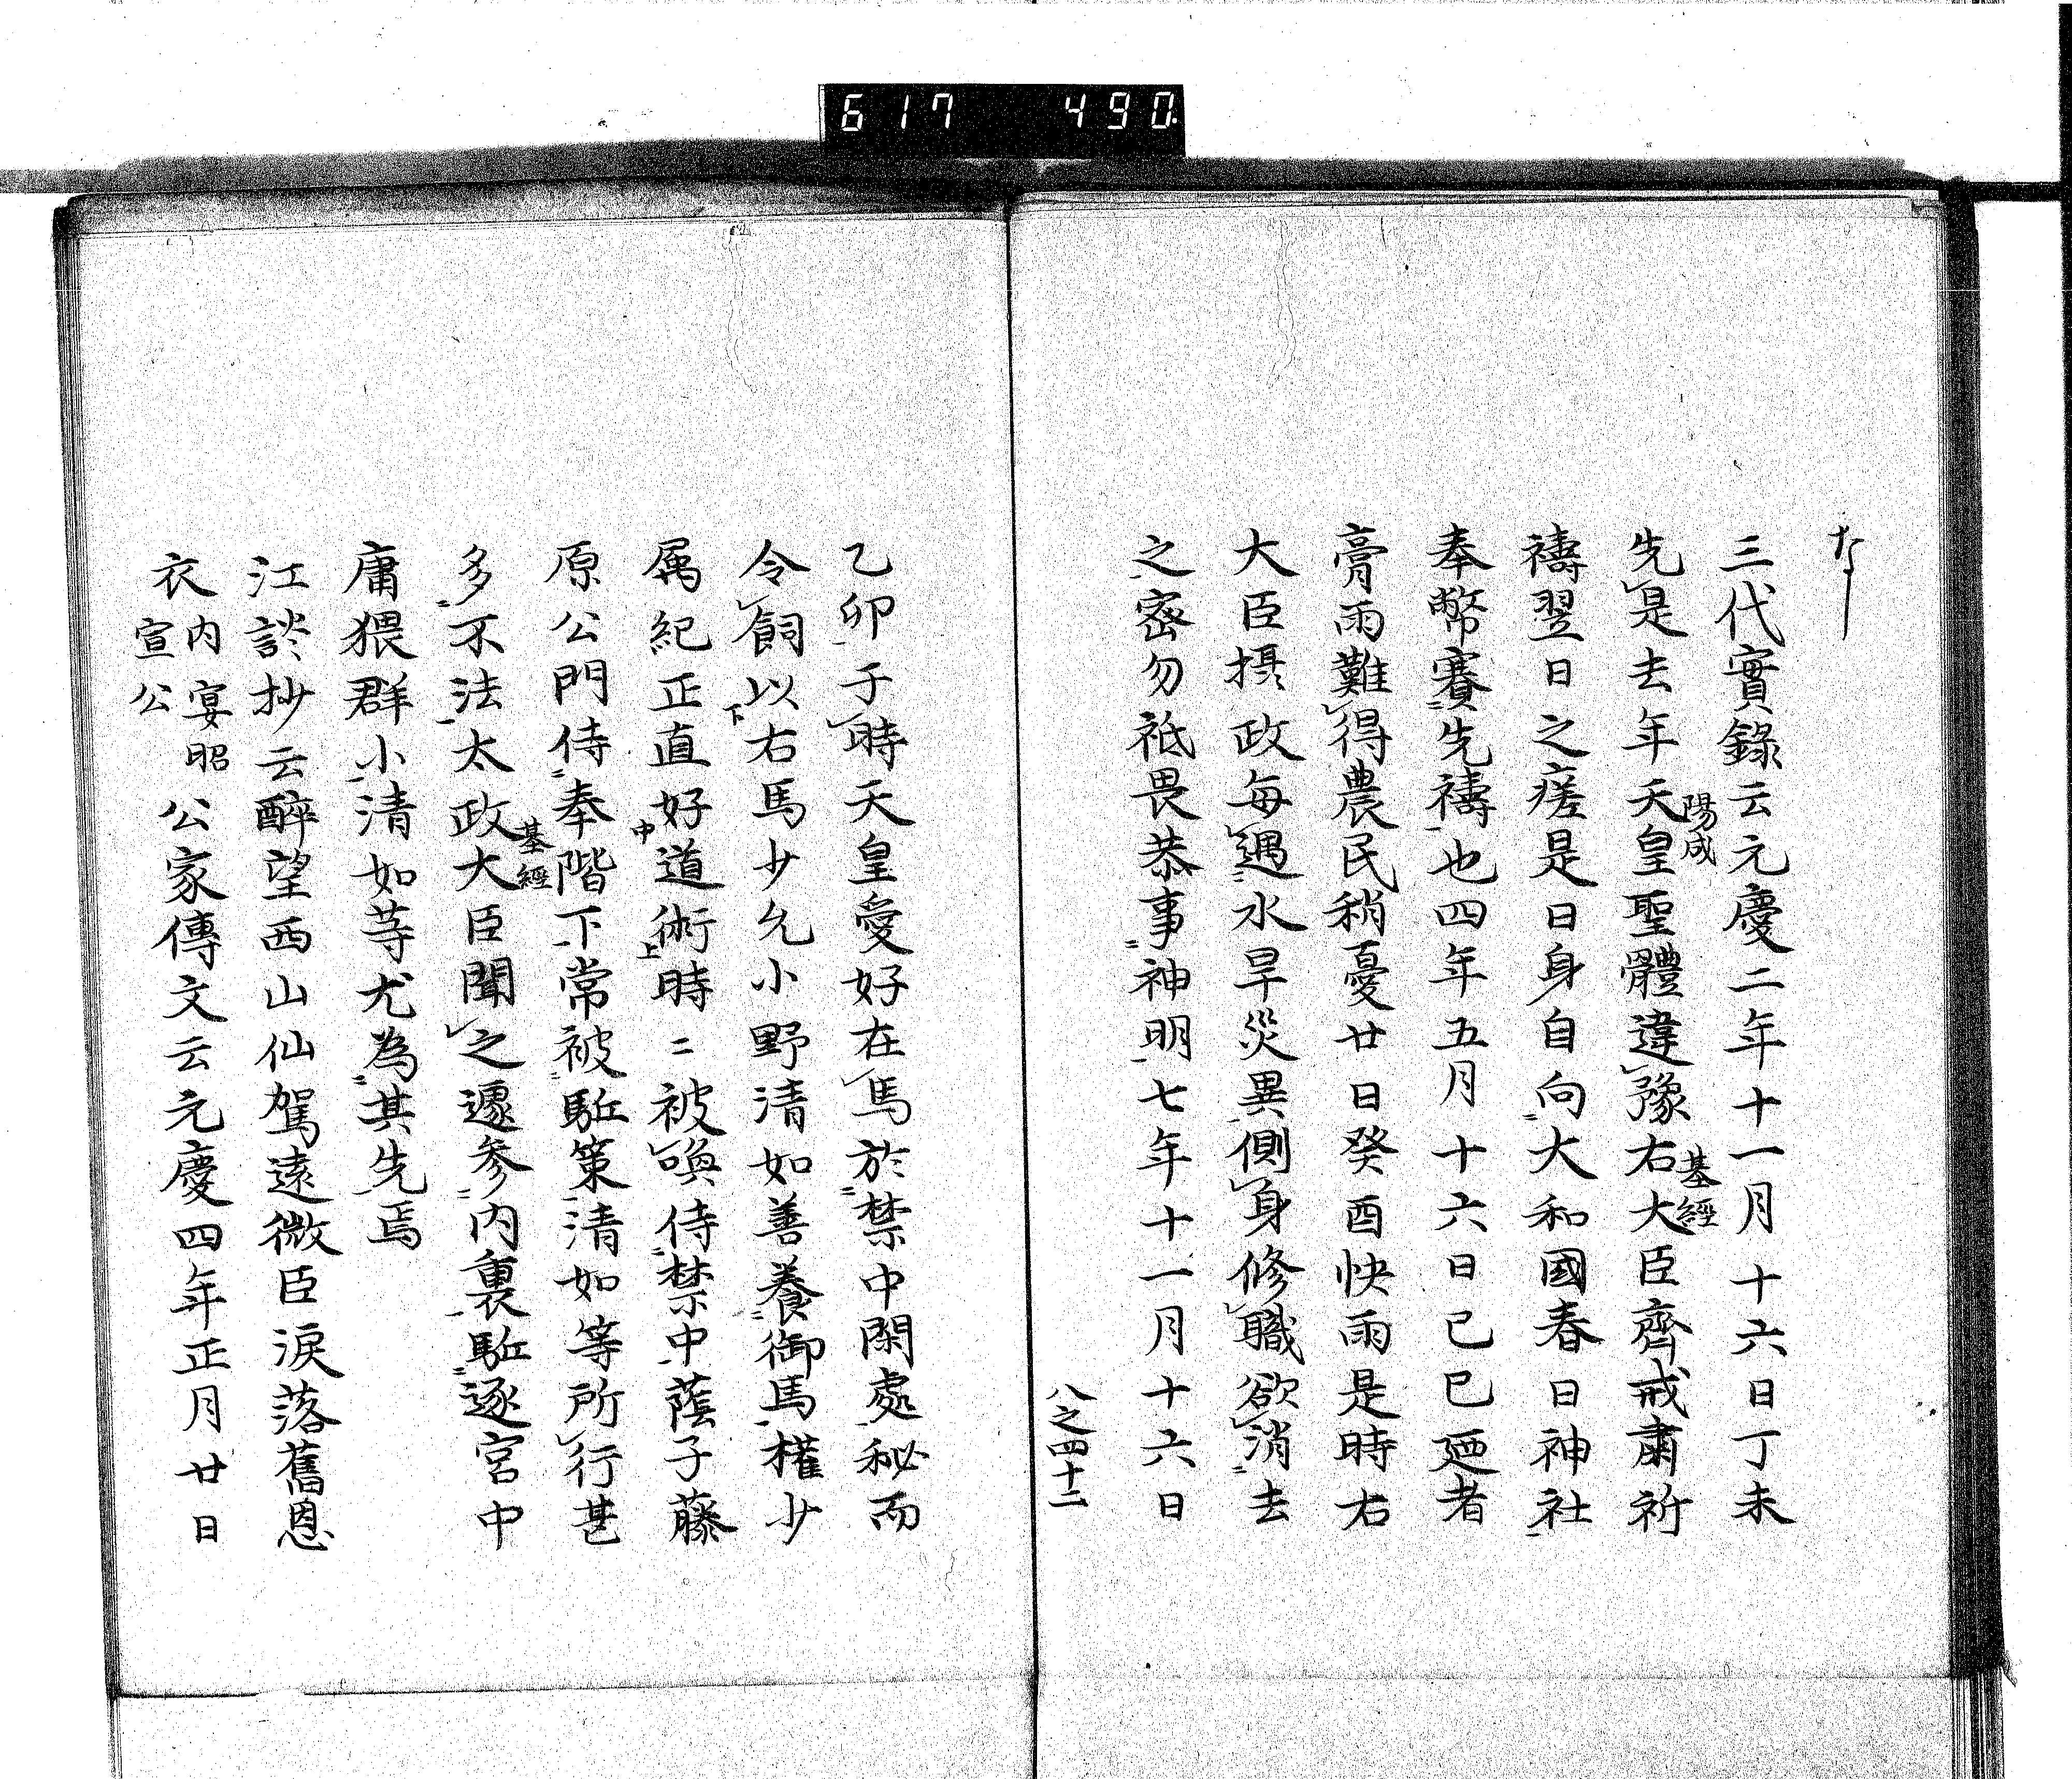 617 490.
なし
三代實錄云元慶二年十一月十六日丁未
先是去年天皇聖體違豫右大臣齊戒肅祈
陽成
基經
禱翌日之瘥是日身自向大和國春日神社
奉幣賽先禱也四年五月十六日己巳廼者
膏雨難得農民稍憂廿日癸酉快雨是時右
大臣摂政每遇水旱災異側身修職欲消去
之密勿祗畏恭事神明七年十一月十六日
八之四十二
乙卯于時天皇愛好在馬於禁中閑處秘而
令飼以右馬少允小野清如善養御馬權少
下
属紀正直好道術時〻被喚侍禁中蔭子藤
中
上
原公門侍奉階下常被駈策清如等所行甚
多不法太政大臣聞之遽参内裏駈逐宮中
基經
庸猥群小清如等尤為其先焉
江談抄云醉望西山仙駕遠微臣淚落舊恩
衣内宴昭宣公公家傳文云元慶四年正月廿日